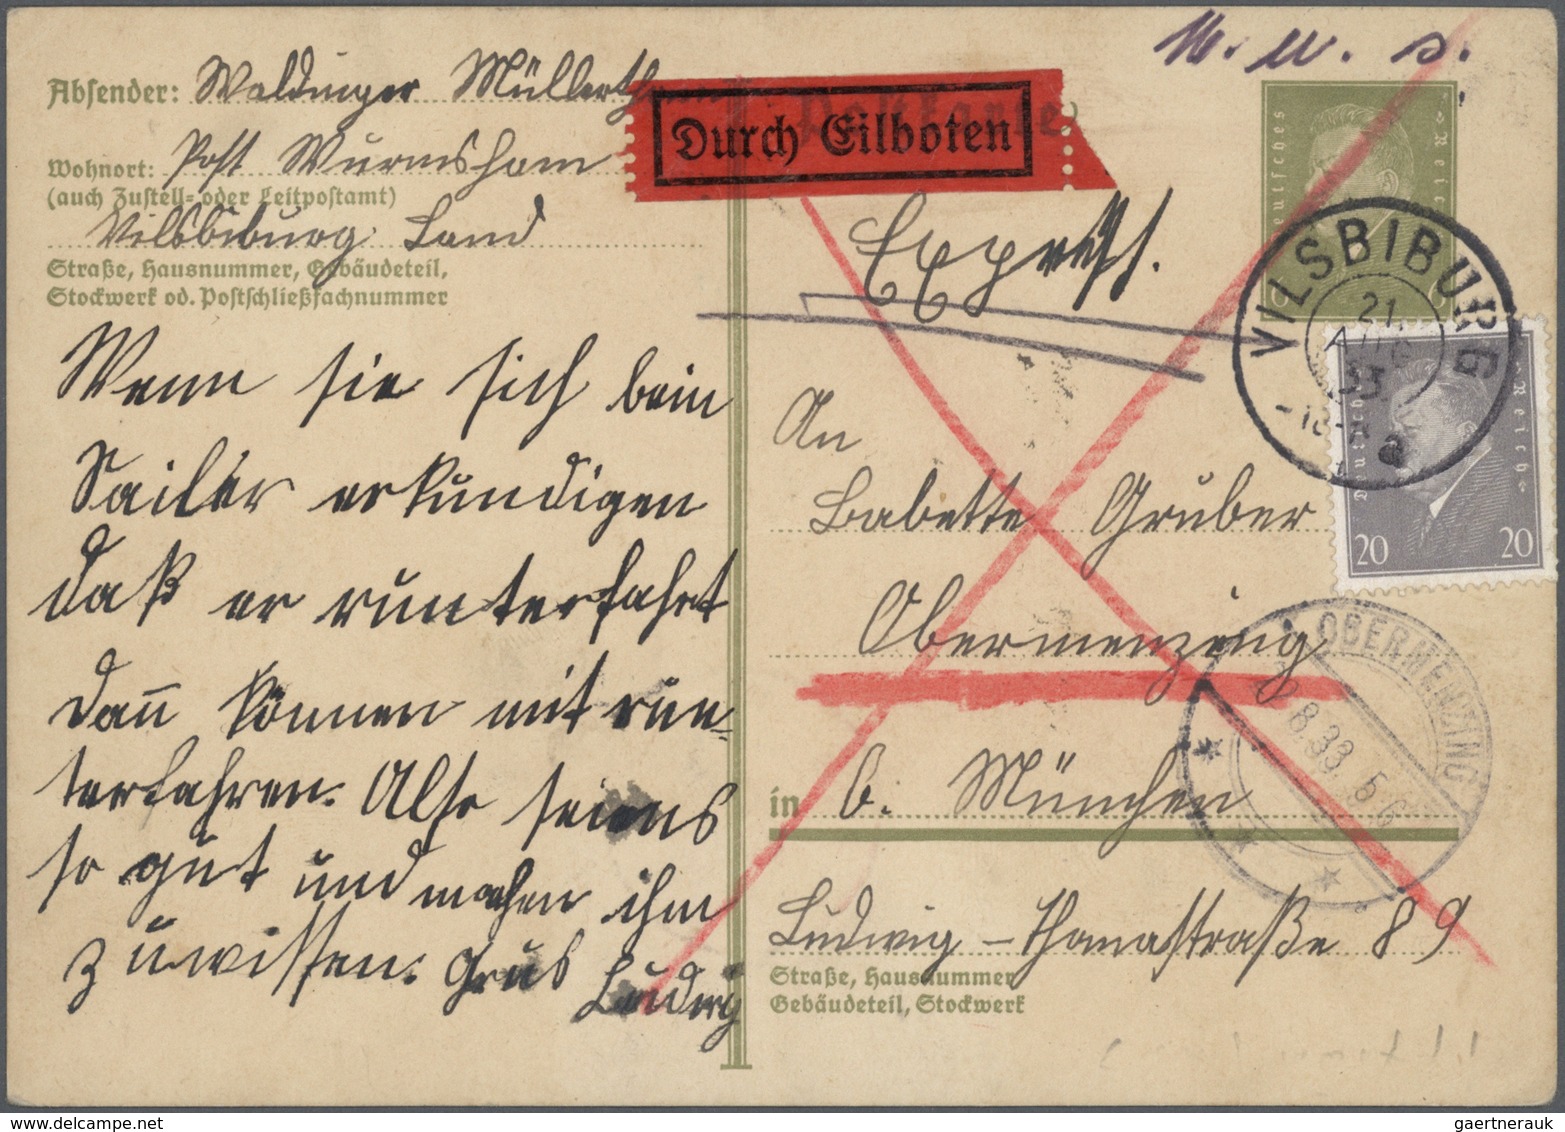 W. W. S.
Absender: Waldinger Müllerthann
Postkarte
Durch Eilboten
Wohnort: Post Wurmsham
(auch Zustell- oder Leitpostamt)
Vilsbiburg Land
Straße, Hausnummer, Gebäudeteil,
Stockwerk od. Postschließfachnummer
Express.
Deutsches Reich
VILSBIBURG
21.
AUG
33
a
Deutsches Reich
20 20
Wenn sie sich beim
Sailer erkundigen
daß er runterfahrt
dann können mit run-
terfahren. Also seiens
so gut und machen ihm
zuwissen. Grus
Ludwig
An
Babette Gruber
Obermenzing
OBERMENZING
8.33. 5-6
in b. München
Ludwig-Thomastraße 89
Straße, Hausnummer
Gebäudeteil, Stockwerk
gaertnerauk @ delcampe.net